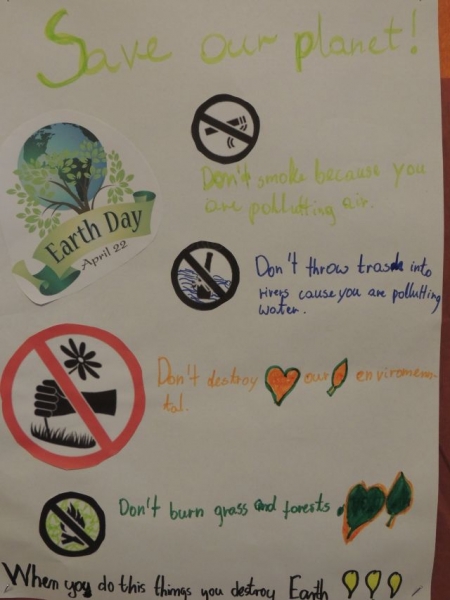 Save our planet!
Earth Day
April 22
Don't smoke because you
are pollutting air.
Don't throw trash into
rivers cause you are pollutting
water.
Don't destroy our enviromen-
tal.
Don't burn grass and forests.
When you do this things you destroy Earth !!!